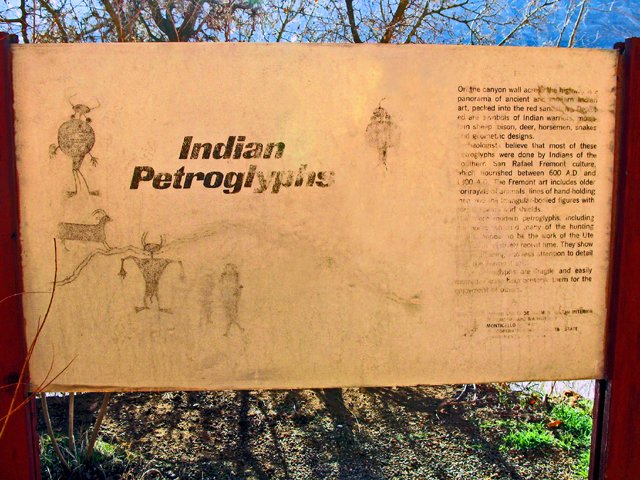 Indian
Petroglyphs
On the canyon wall across the highway is a
panorama of ancient and modern Indian
art, pecked into the red
ed are symbols of Indian warriors,
sheep, bison, deer, horsemen, snakes
and geometric designs.
believe that most of these
petroglyphs were done by Indians of the
San Rafael Fremont culture,
which flourished between 600 A.D. and
A.D. The Fremont art includes older
portrayals of animals, lines of hand-holding
men and triangular-bodied figures with
and shields.
more modern petroglyphs, including
and many of the hunting
to be the work of the Ute
recent time. They show
less attention to detail
are fragile and easily
help preserve them for the
enjoyment of others.
INTERIOR
MONTICELLO
STATE